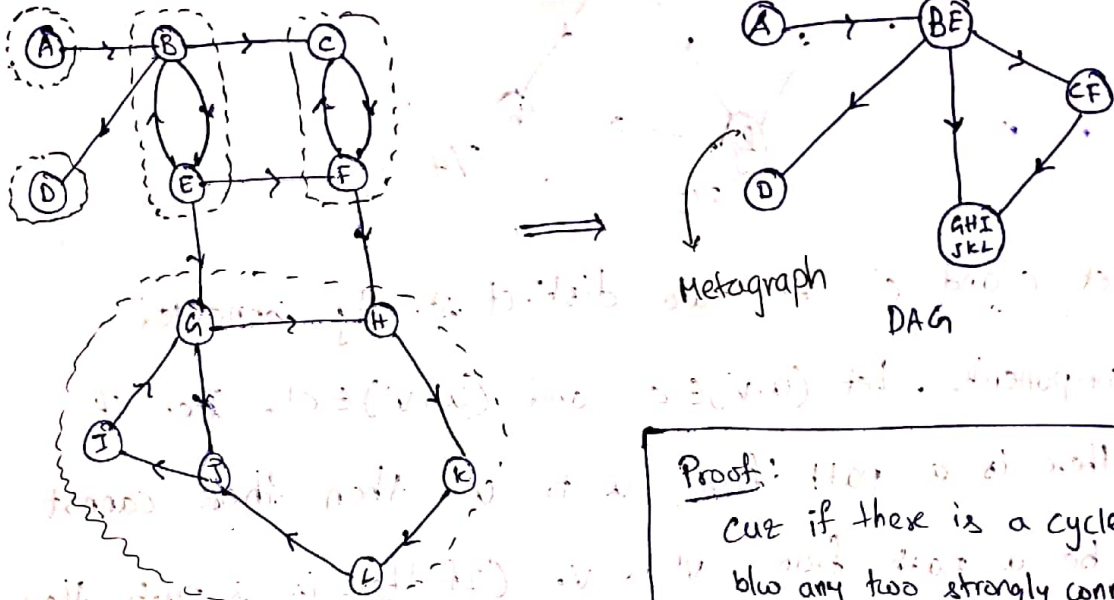 A
B
C
D
E
F
G
H
I
J
K
L
A
BE
CF
D
GHI
JKL
Metagraph
DAG
Proof:
cuz if there is a cycle
b/w any two strongly conn